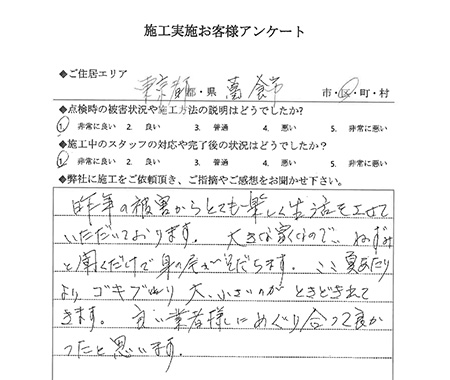 施工実施お客様アンケート
◆ご住居エリア
東京都 都・県 葛飾市 市・区・町・村
◆点検時の被害状況や施工方法の説明はどうでしたか?
1. 非常に良い 2. 良い 3. 普通 4. 悪い 5. 非常に悪い
◆施工中のスタッフの対応や完了後の状況はどうでしたか?
1. 非常に良い 2. 良い 3. 普通 4. 悪い 5. 非常に悪い
◆弊社に施工をご依頼頂き、ご指摘やご感想をお聞かせ下さい。
昨年の被害からとても楽しく生活をさせて
いただいております。大きな家なので、ねずみ
と聞くだけで身の毛がよだちます。ここ夏あたり
より、ゴキブリ 大、小さいのが ときどきでて
きます。良い業者様にめぐり合って良か
ったと思います。